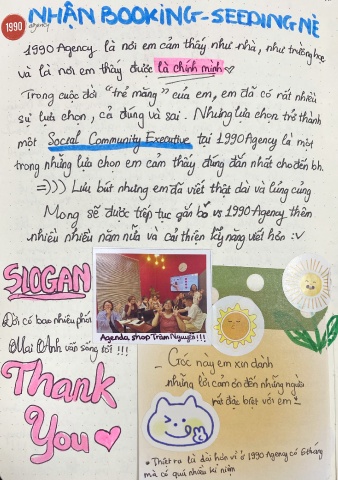 1990 agency
NHẬN BOOKING-SEEDING NÈ
1990 Agency là nơi em cảm thấy như nhà, như trường học
và là nơi em thấy được là chính mình
Trong cuộc đời "trẻ măng" của em, em đã có rất nhiều
sự lựa chọn, cả đúng và sai. Nhưng lựa chọn trở thành
một Social Community Executive tại 1990 Agency là một
trong những lựa chọn em cảm thấy đúng đắn nhất cho đến bh.
=))) Lưu bút nhưng em đã viết thật dài và lủng củng
Mong sẽ được tiếp tục gắn bó vs 1990 Agency thêm
nhiều nhiều năm nữa và cải thiện kỹ năng viết hơn :v
SLOGAN
Đời có bao nhiêu phút
Mai Anh vẫn sống tốt !!!
Thank
You
Agenda shop Trâm Nguyễn!!!
_ Góc này em xin dành
những lời cảm ơn đến những người
rất đặc biệt với em _
* Thật ra là dài hơn vì ở 1990 Agency có 6 tháng
mà có quá nhiều kỉ niệm